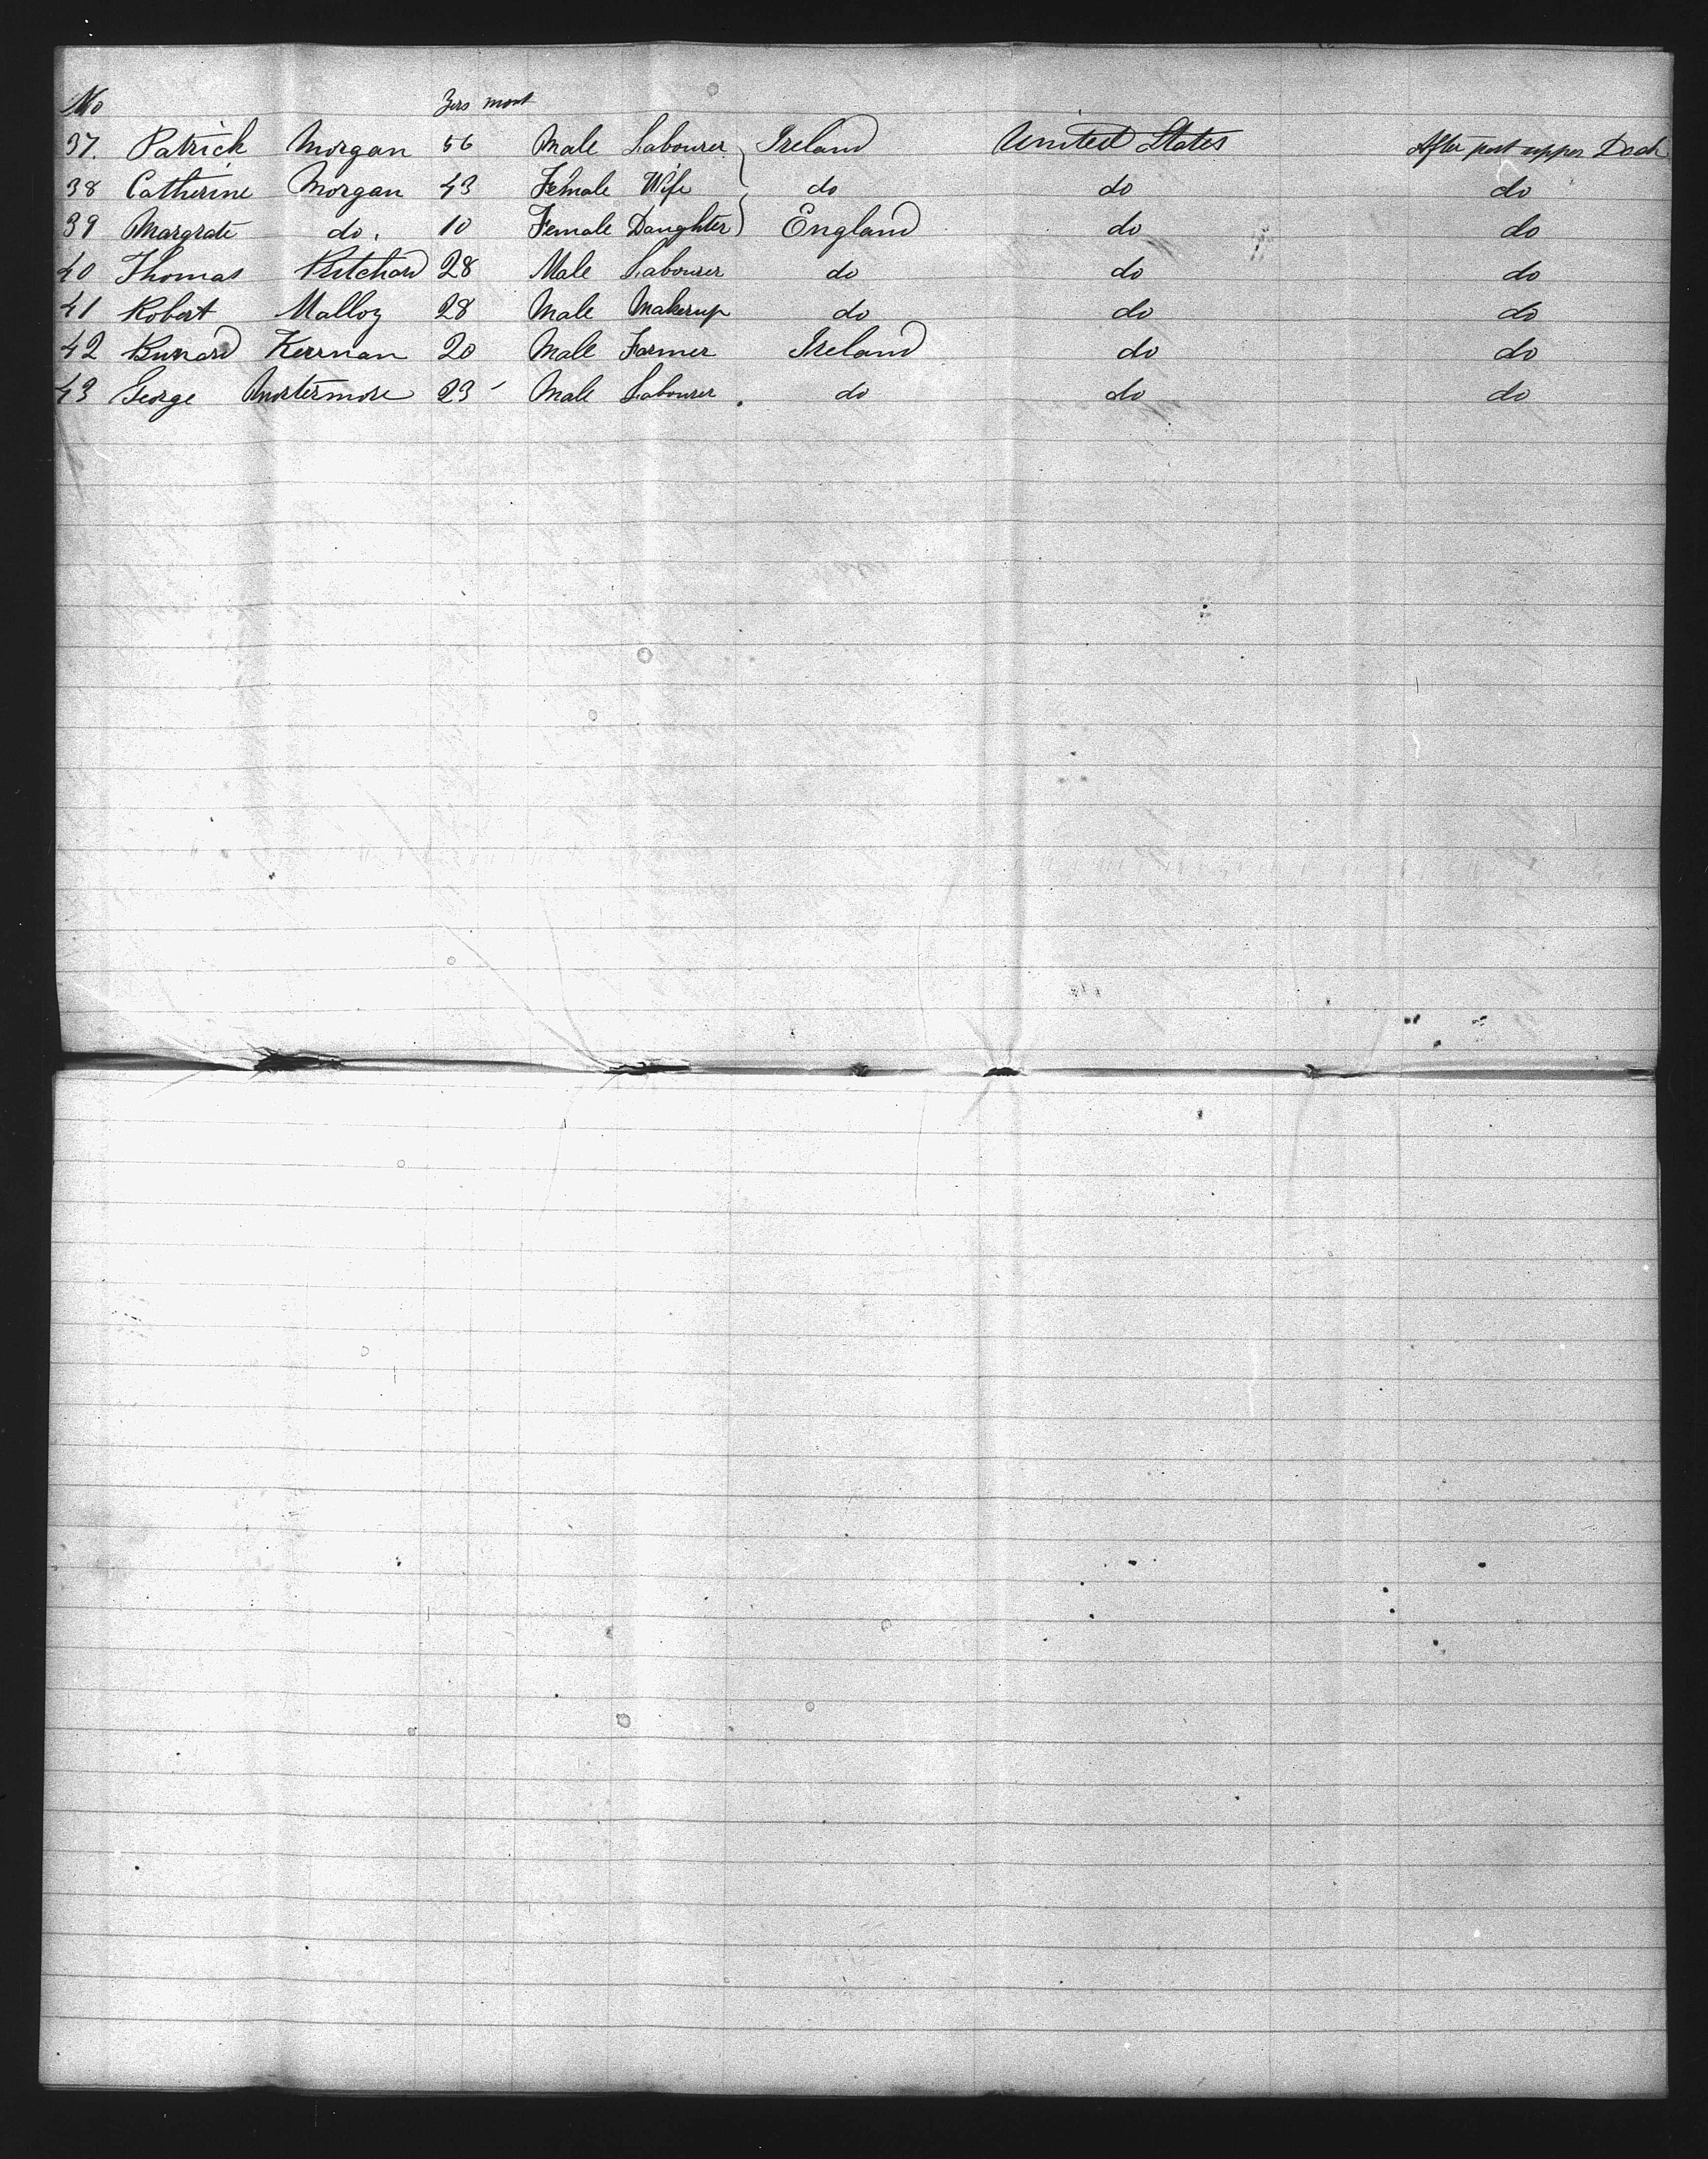 No Yrs mont
37. Patrick Morgan 56 Male Labourer Ireland United States After part upper Deck
38 Catherine Morgan 43 Female Wife do do do
39 Margrate do. 10 Female Daughter England do do
40 Thomas Pritchard 28 Male Labourer do do do
41 Robert Malloy 28 Male Makerup do do do
42 Bernard Kernan 20 Male Farmer Ireland do do
43 George Mortermore 23 Male Labourer do do do